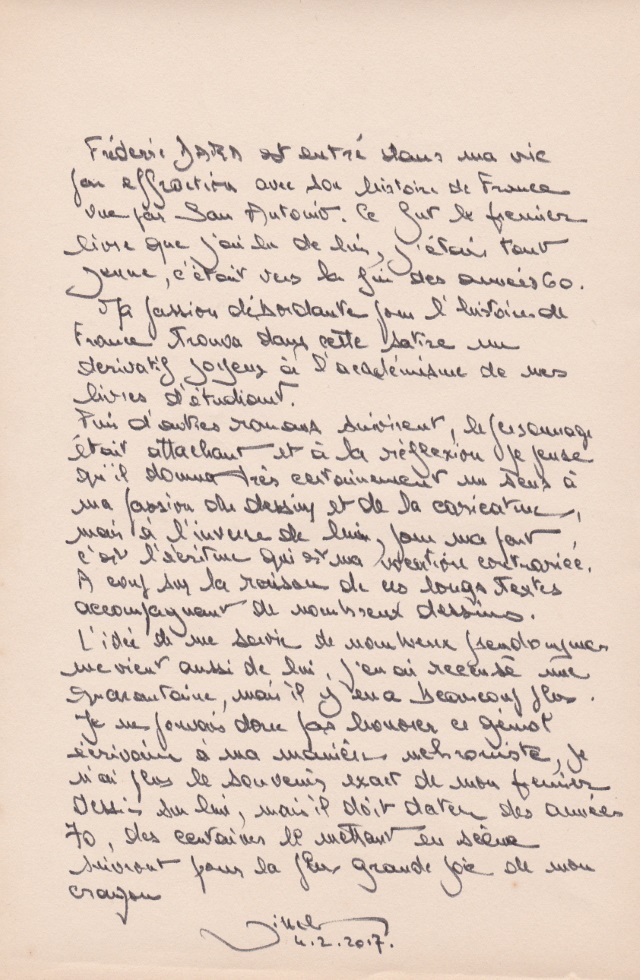 Frédéric DARD est entré dans ma vie
par effraction avec son histoire de France
vue par San Antonio. Ce fut le premier
livre que j'ai lu de lui, j'étais tout
jeune, c'était vers la fin des années 60.
Ma passion débordante pour l'histoire de
France trouva dans cette satire un
dérivatif joyeux à l'académisme de mes
livres d'étudiant.
Puis d'autres romans suivirent, le personnage
était attachant et à la réflexion je pense
qu'il donna très certainement un sens à
ma passion du dessin et de la caricature,
mais à l'inverse de lui, pour ma part
c'est l'écriture qui est ma vocation contrariée.
A coup sur la raison de ces longs textes
accompagnant de nombreux dessins.
L'idée de me servir de nombreux pseudonymes
me vient aussi de lui, j'en ai recensé une
quarantaine, mais il y en a beaucoup plus.
Je ne pouvais donc pas honorer ce génial
écrivain à ma manière, je
n'ai plus le souvenir exact de mon premier
dessin sur lui, mais il doit dater des années
70, des centaines le mettant en scène
suivront pour la plus grande joie de mon
crayon
4.2.2017.